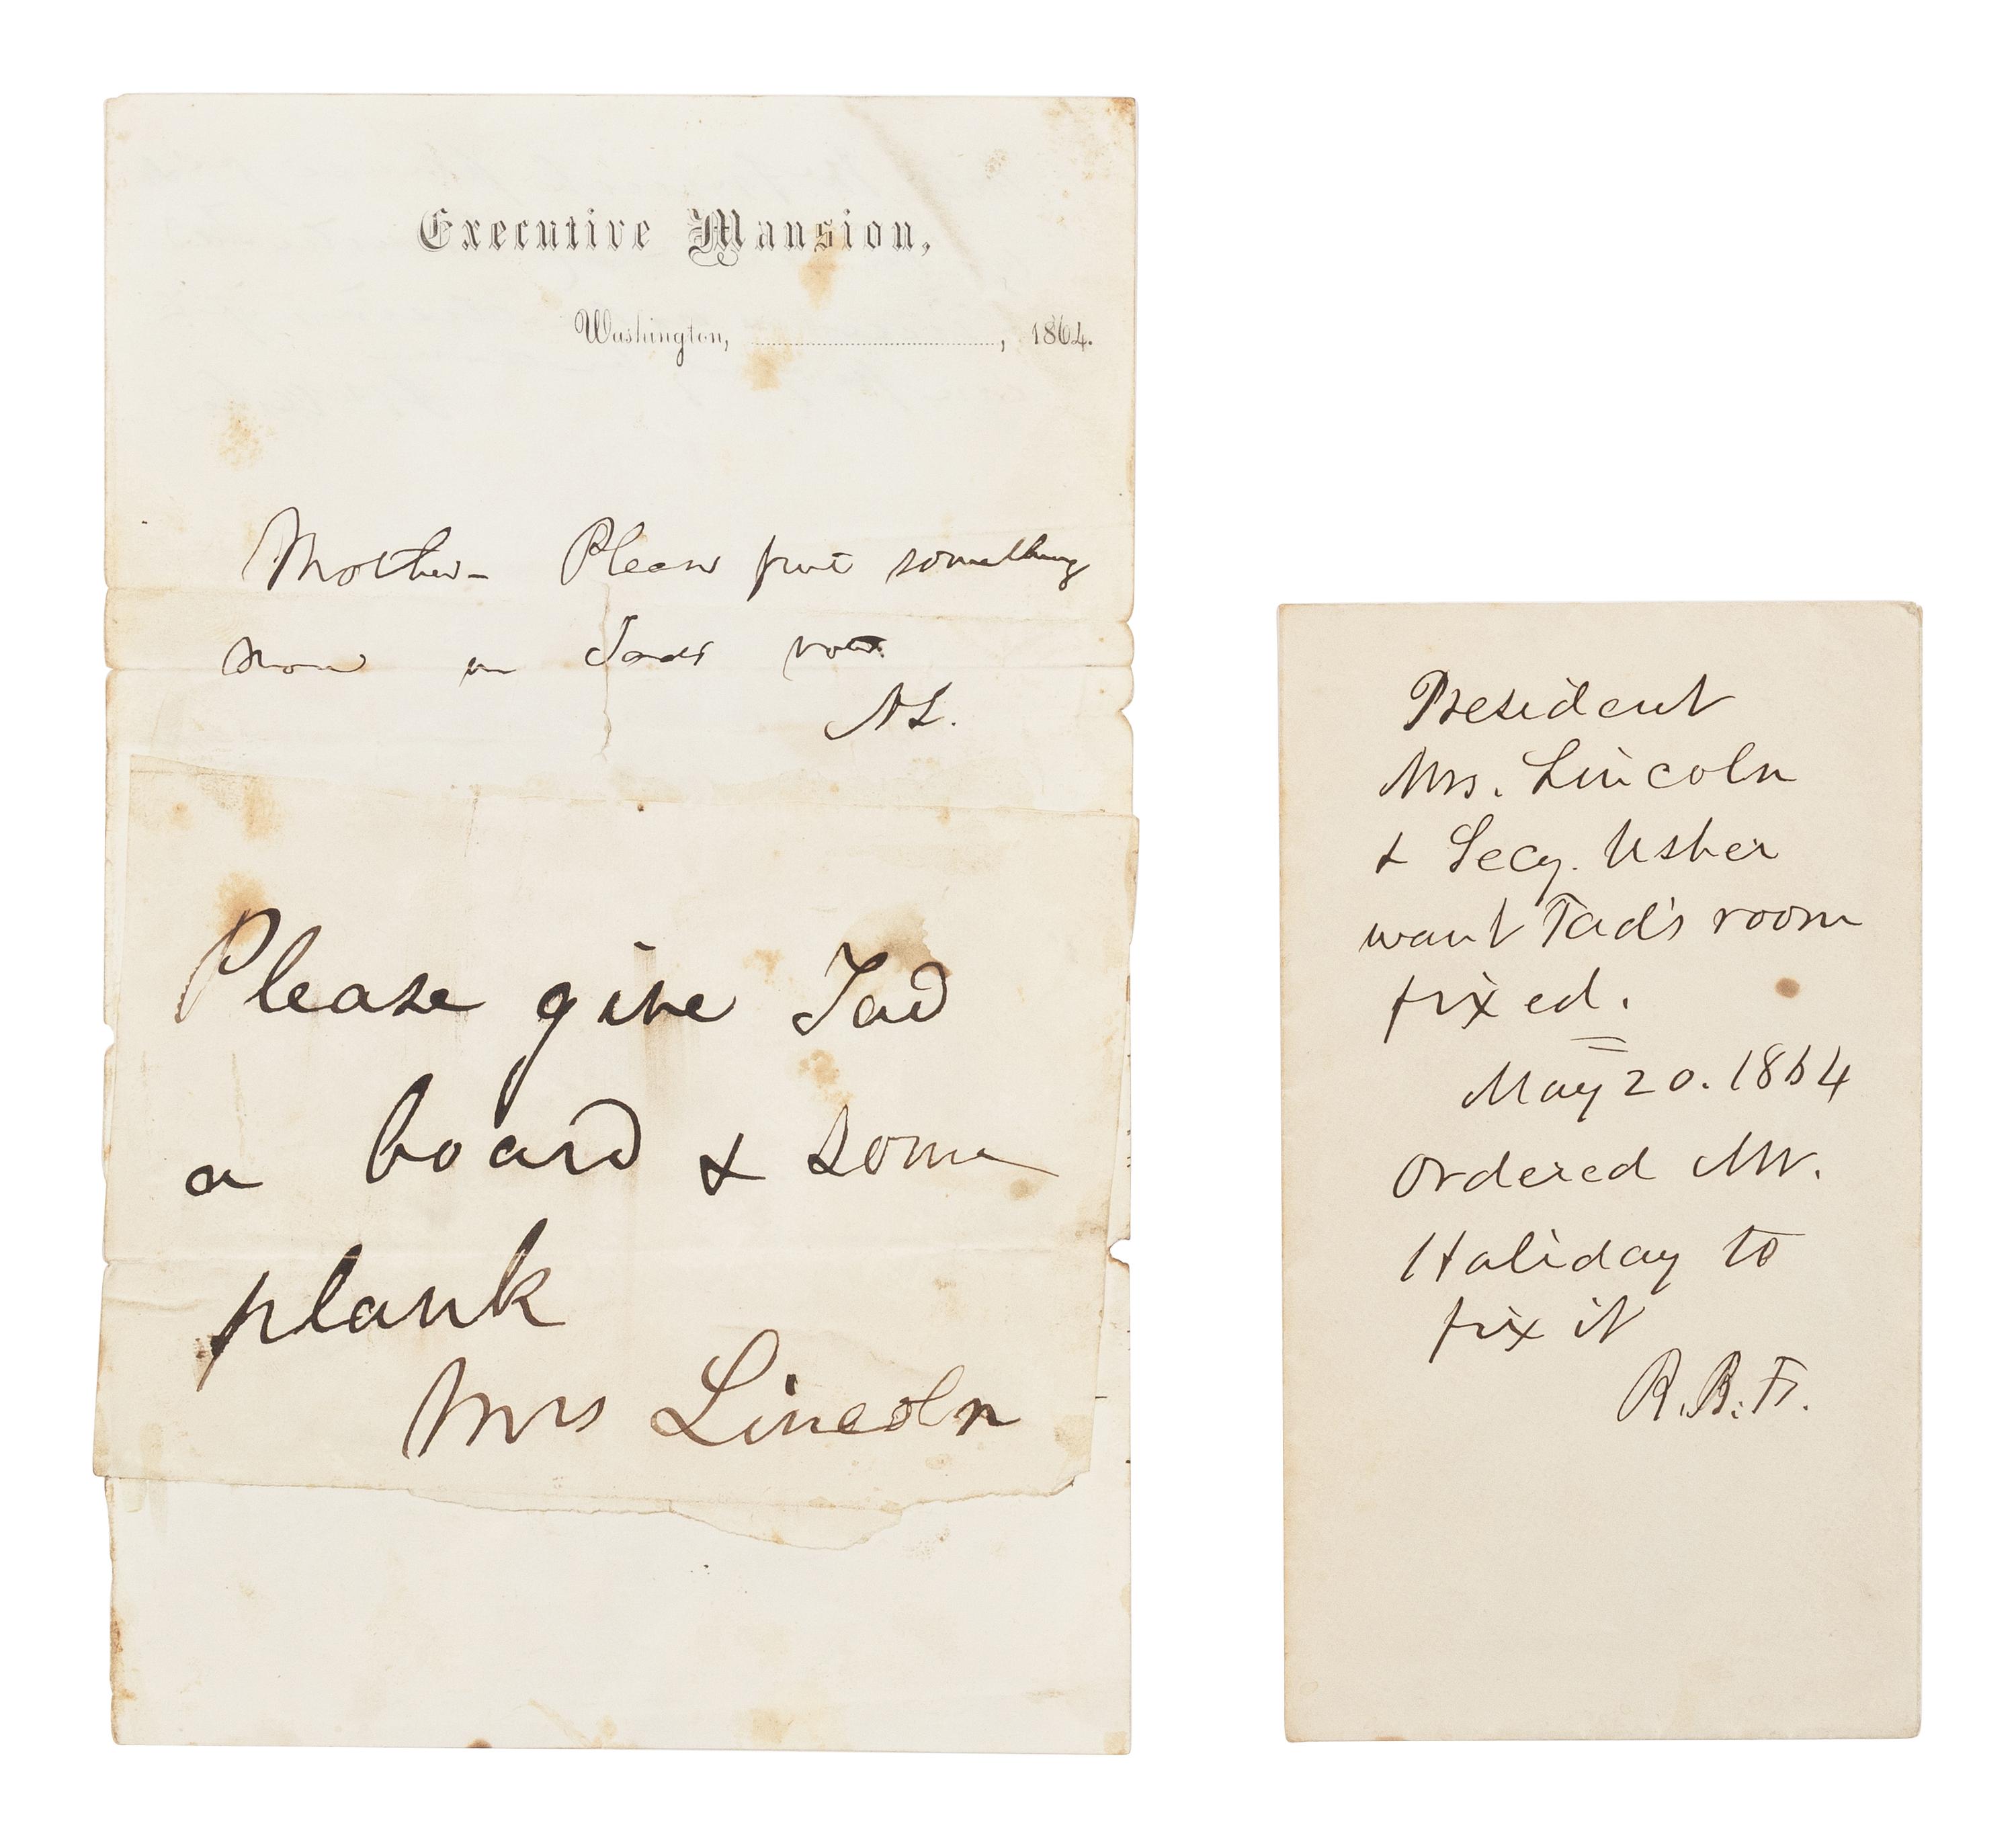 Executive Mansion,
Washington, ..............................., 1864.
Mother- Please put something
in Tads
A L.
Please give Tad
a board & some
plank
Mrs Lincoln
President
Mrs. Lincoln
& Secy. Usher
want Tad's room
fixed.
May 20. 1864
Ordered Mr.
Haliday to
fix it
R. B. F.